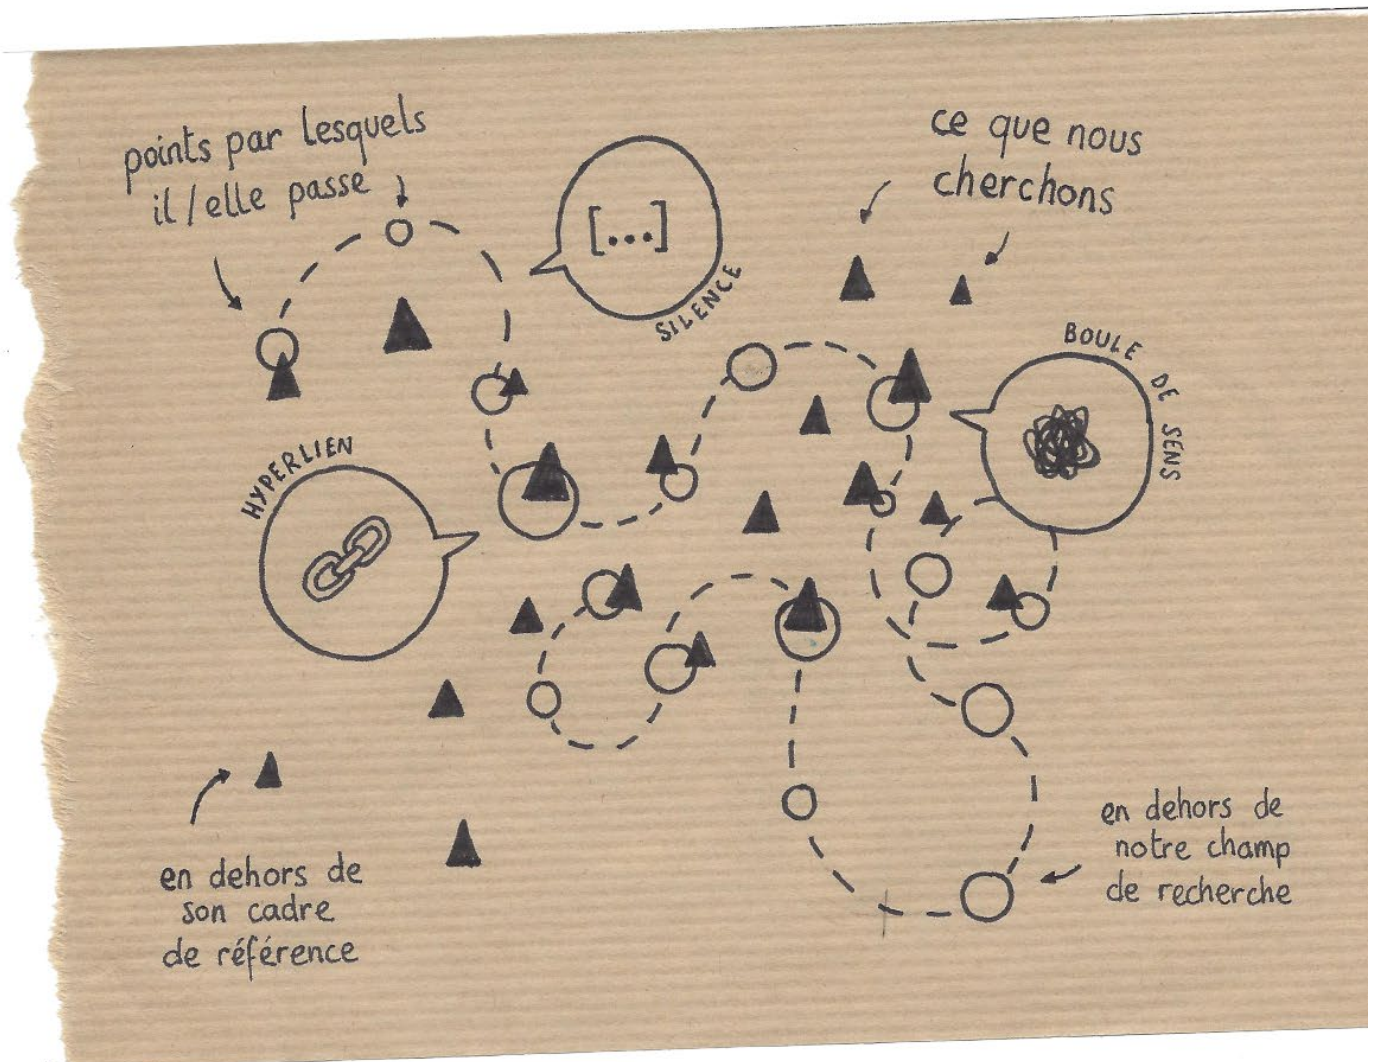 points par lesquels
il/elle passe
ce que nous
cherchons
[...]
SILENCE
BOULE DE SENS
HYPERLIEN
en dehors de
son cadre
de référence
en dehors de
notre champ
de recherche